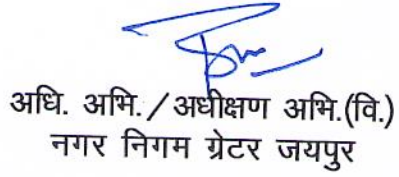 अधि. अभि./अधीक्षण अभि.(वि.)
नगर निगम ग्रेटर जयपुर